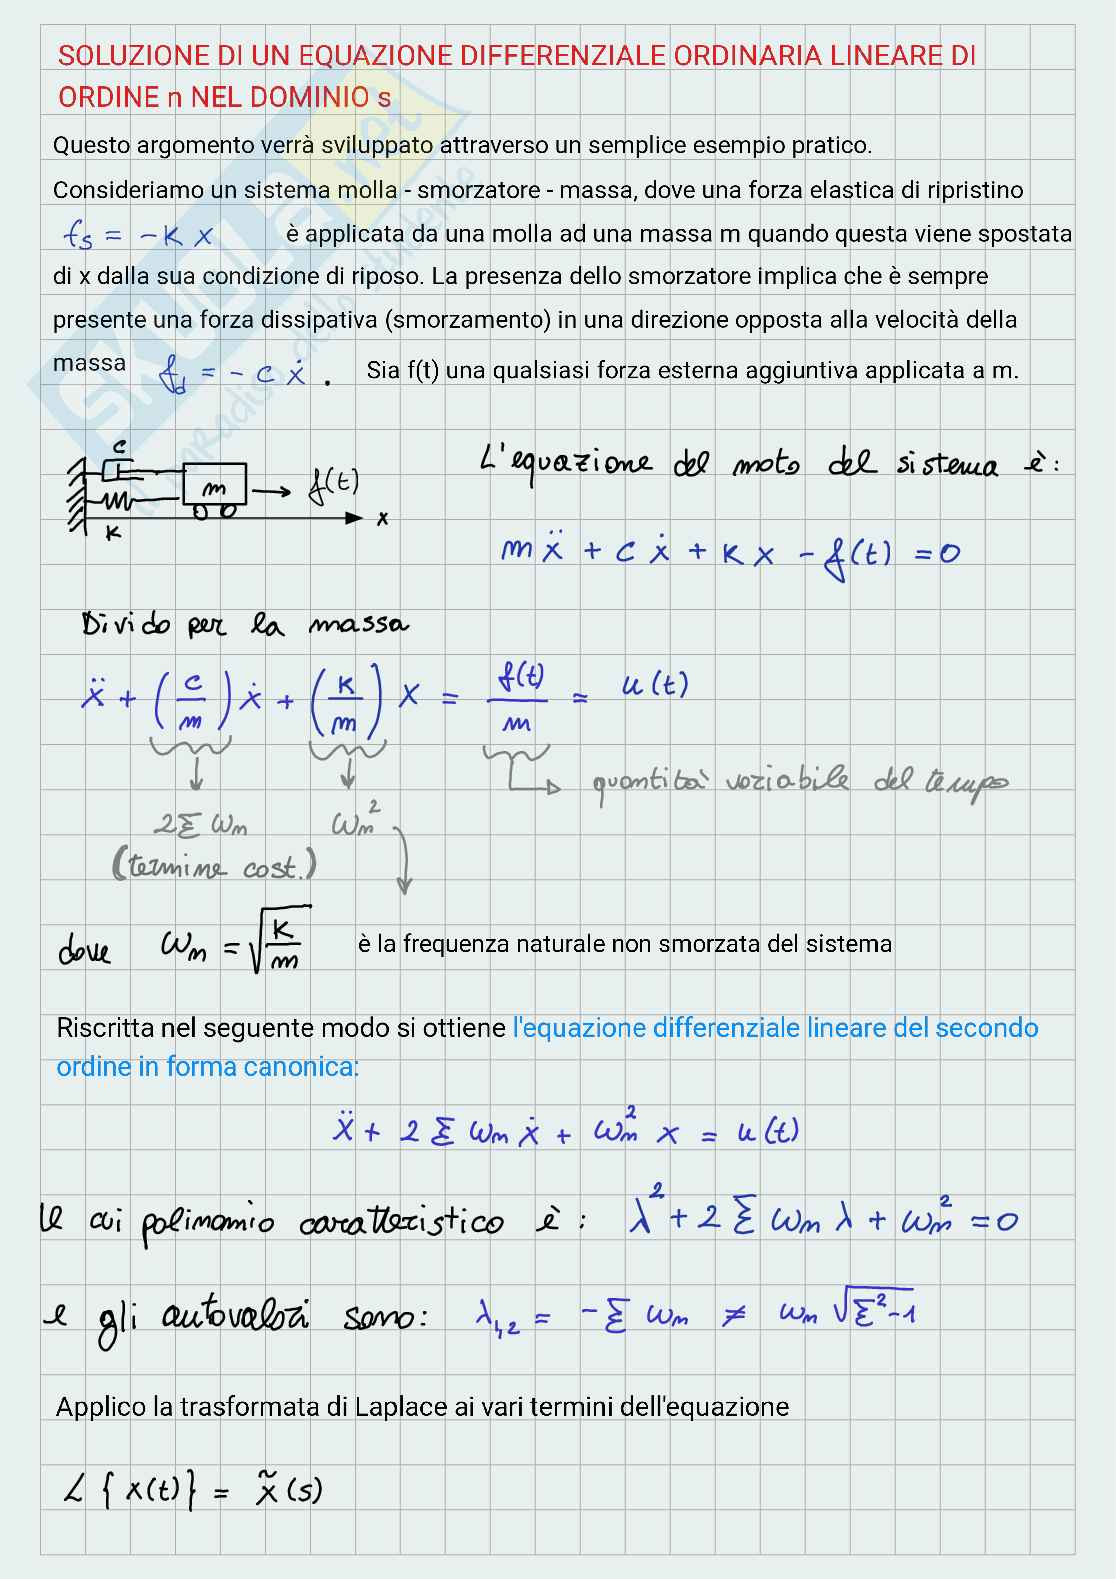 SOLUZIONE DI UN EQUAZIONE DIFFERENZIALE ORDINARIA LINEARE DI
ORDINE n NEL DOMINIO s
Questo argomento verrà sviluppato attraverso un semplice esempio pratico.
Consideriamo un sistema molla - smorzatore - massa, dove una forza elastica di ripristino
fs = -K x è applicata da una molla ad una massa m quando questa viene spostata
di x dalla sua condizione di riposo. La presenza dello smorzatore implica che è sempre
presente una forza dissipativa (smorzamento) in una direzione opposta alla velocità della
massa fd = - c ẋ . Sia f(t) una qualsiasi forza esterna aggiuntiva applicata a m.
L'equazione del moto del sistema è:
c
m f(t)
K x
m ẍ + c ẋ + K x - f(t) = 0
Divido per la massa
ẍ + (c/m) ẋ + (K/m) x = f(t)/m = u(t)
quantità variabile del tempo
2ξ ωn ωn²
(termine cost.)
dove ωn = √(K/m) è la frequenza naturale non smorzata del sistema
Riscritta nel seguente modo si ottiene l'equazione differenziale lineare del secondo
ordine in forma canonica:
ẍ + 2 ξ ωn ẋ + ωn² x = u(t)
Il cui polinomio caratteristico è: λ² + 2 ξ ωn λ + ωn² = 0
e gli autovalori sono: λ1,2 = - ξ ωn ≠ ωn √(ξ²-1)
Applico la trasformata di Laplace ai vari termini dell'equazione
L { x(t) } = x̃ (s)
SKUOLA.net
il paradiso dello studente